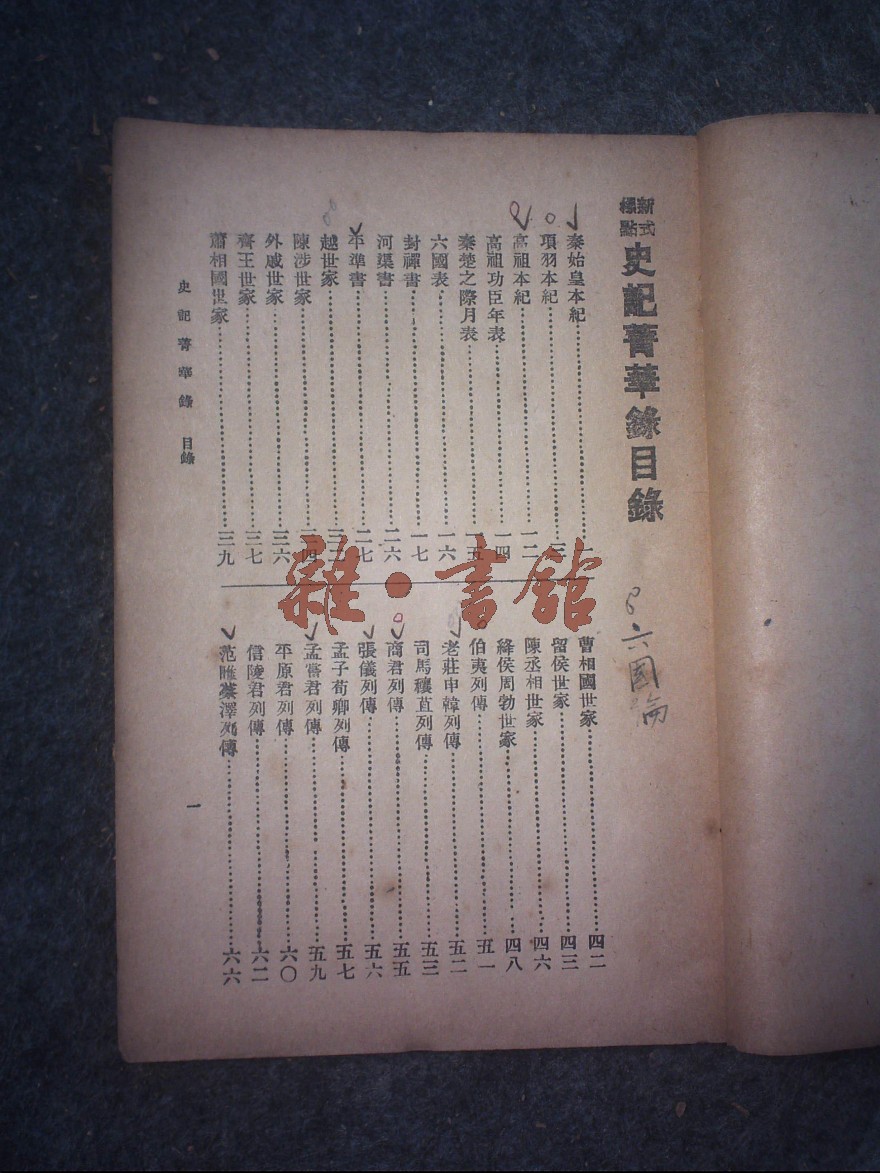 新式標點 史記菁華錄目錄
秦始皇本紀 一
項羽本紀 三
高祖本紀 一二
高祖功臣年表 一四
秦楚之際月表 一五
六國表 一六
封禪書 一七
河渠書 二六
平準書 二七
越世家 三二
陳涉世家 三四
外戚世家 三六
齊王世家 三七
蕭相國世家 三九
曹相國世家 四二
留侯世家 四三
陳丞相世家 四六
絳侯周勃世家 四八
伯夷列傳 五一
老莊申韓列傳 五二
司馬穰苴列傳 五三
商君列傳 五五
張儀列傳 五六
孟子荀卿列傳 五七
孟嘗君列傳 五九
平原君列傳 六〇
信陵君列傳 六二
范睢蔡澤列傳 六六
史記菁華錄 目錄
一
六國論
雜·書館